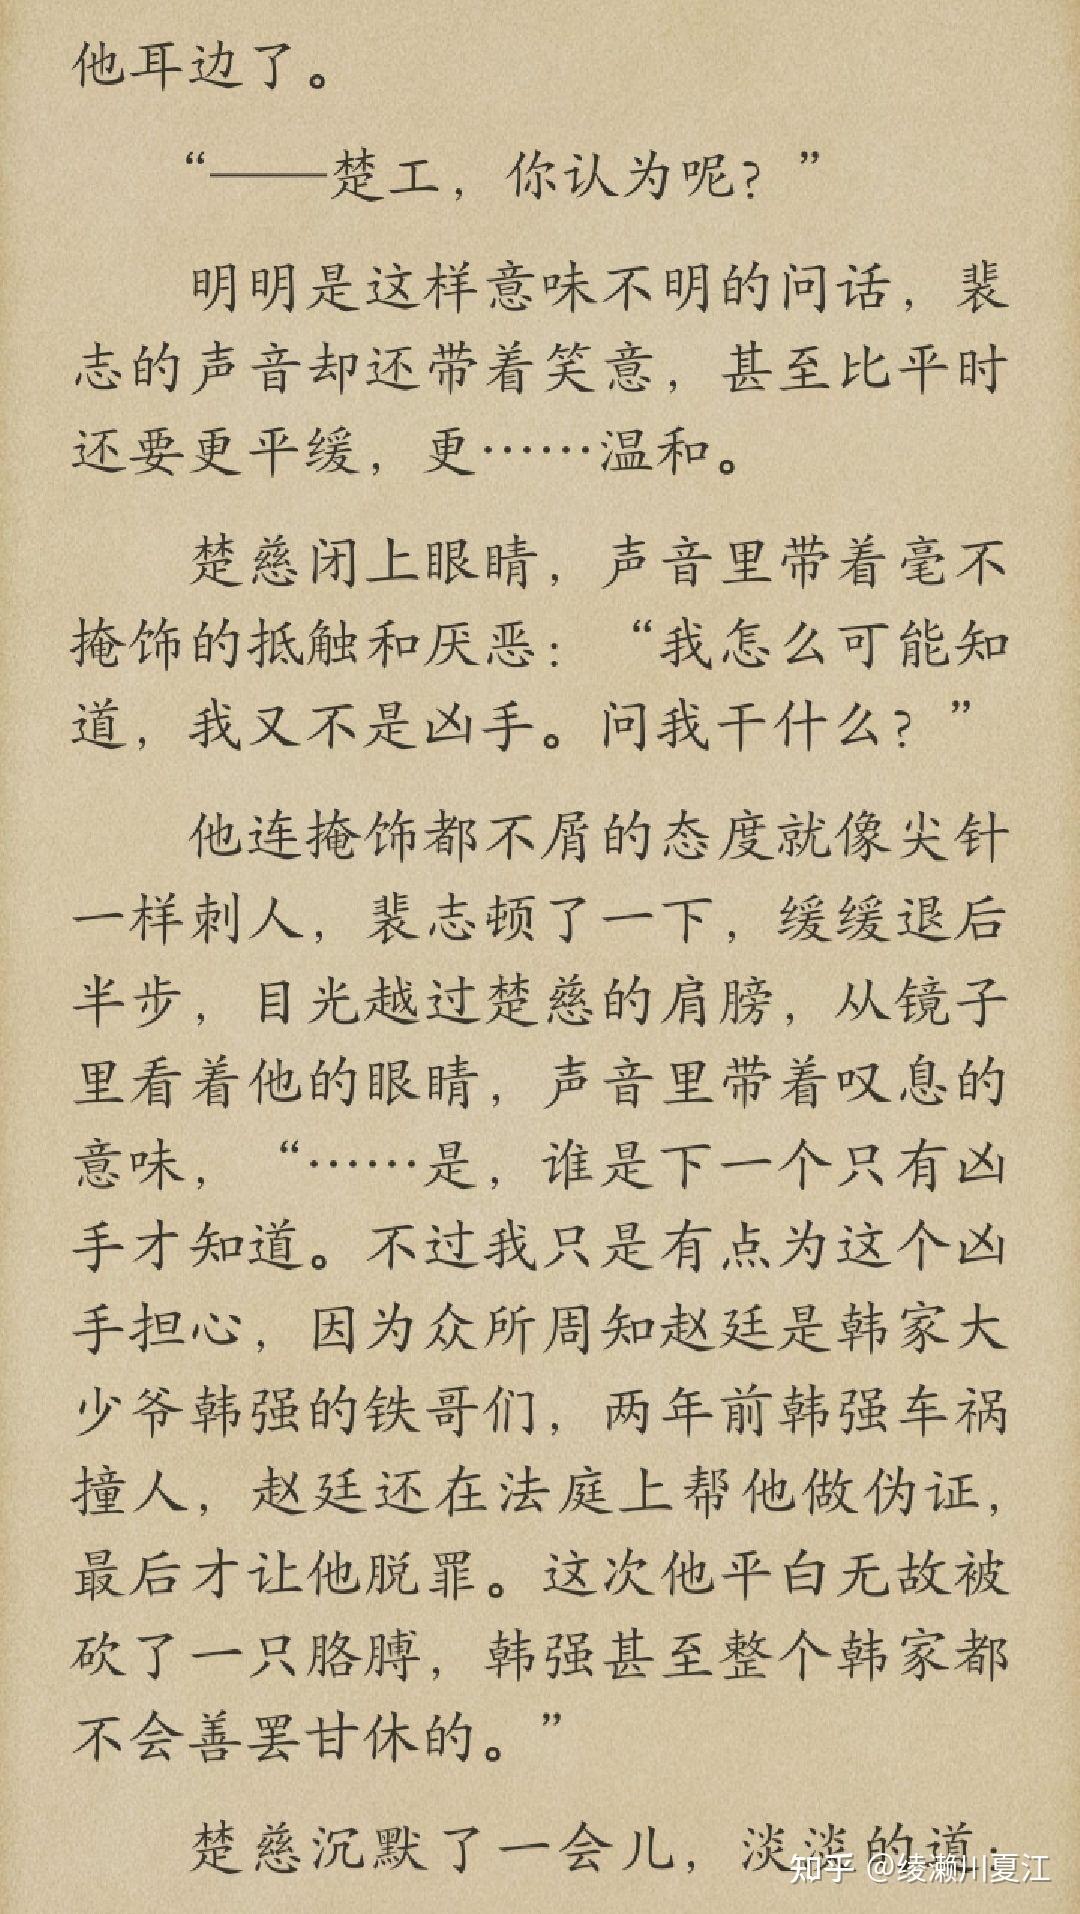 他耳边了。
“——楚工，你认为呢？”
明明是这样意味不明的问话，裴
志的声音却还带着笑意，甚至比平时
还要更平缓，更……温和。
楚慈闭上眼睛，声音里带着毫不
掩饰的抵触和厌恶：“我怎么可能知
道，我又不是凶手。问我干什么？”
他连掩饰都不屑的态度就像尖针
一样刺人，裴志顿了一下，缓缓退后
半步，目光越过楚慈的肩膀，从镜子
里看着他的眼睛，声音里带着叹息的
意味，“……是，谁是下一个只有凶
手才知道。不过我只是有点为这个凶
手担心，因为众所周知赵廷是韩家大
少爷韩强的铁哥们，两年前韩强车祸
撞人，赵廷还在法庭上帮他做伪证，
最后才让他脱罪。这次他平白无故被
砍了一只胳膊，韩强甚至整个韩家都
不会善罢甘休的。”
楚慈沉默了一会儿，淡淡的道：
知乎 @绫濑川夏江